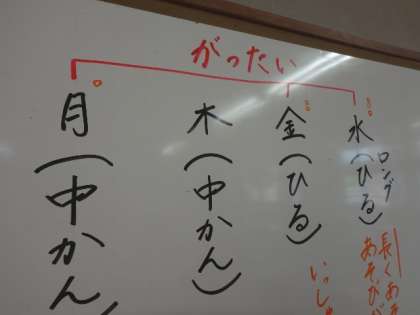 がったい
水(ひる)
ロング
金(ひる)
木(中かん)
月(中かん)
長くあそ
あそびが
いっしょ